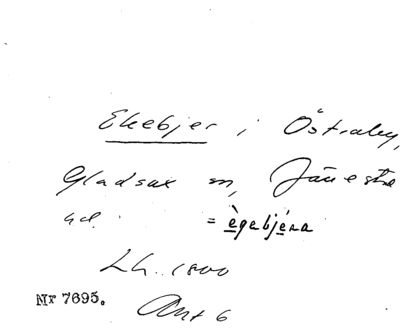 Ekebjer i Östraby,
Gladsax sn, Järrestads
hd. = ègebjéra
Lh. 1800
Ant 6
Nr 7695.